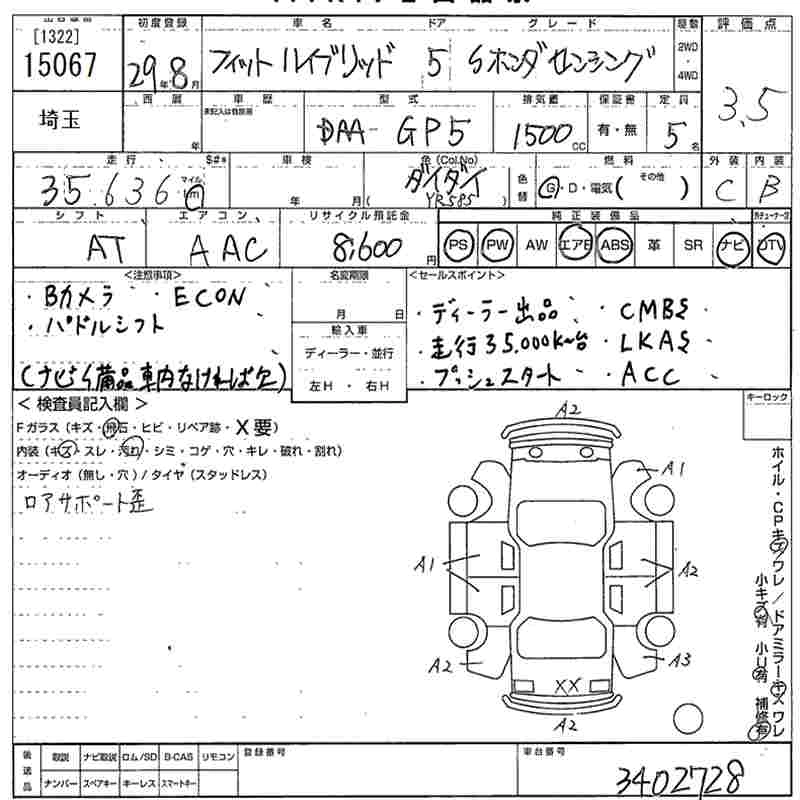 [1322]
15067
初度登録 車名 ドア グレード 駆動 評価点
29年8月 フィットハイブリッド 5 Sホンダセンシング 2WD・4WD 3.5
埼玉
西暦 車歴 型式 排気量 保証書 定員
年 未記入は自家用 DAA-GP5 1500cc 有・無 5名
走行 $#* 車検 色(Col.No) 燃料 外装 内装
35.636 マイル km 年 月 ダイダイ (YR585) 色替 G・D・電気( その他 ) C B
シフト エアコン リサイクル預託金 純正装備品
AT AAC 8,600円 PS PW AW エアB ABS 革 SR ナビ DTV
<注意事項> 名変期限 <セールスポイント>
・Bカメラ ・ECON
・パドルシフト
(ナビ、備品車内なければ欠)
月 日
輸入車
ディーラー・並行
左H ・ 右H
・ディーラー出品 ・CMBS
・走行35.000km台 ・LKAS
・プッシュスタート ・ACC
<検査員記入欄> キーロック
Fガラス(キズ・飛石・ヒビ・リペア跡・X要)
内装(キズ・スレ・汚れ・シミ・コゲ・穴・キレ・破れ・割れ)
オーディオ(無し・穴)/タイヤ(スタッドレス)
ロアサポート歪
A2
A1
A1 A2
A2 A3
XX
A2
ホイル・CPキズ/ワレ/ドアミラーキズワレ
小キズ有 小U有 補修有
後送品 取説 ナビ取説 ロム/SD B-CAS リモコン
ナンバー スペアキー キーレス スマートキー
登録番号 車台番号
3402728